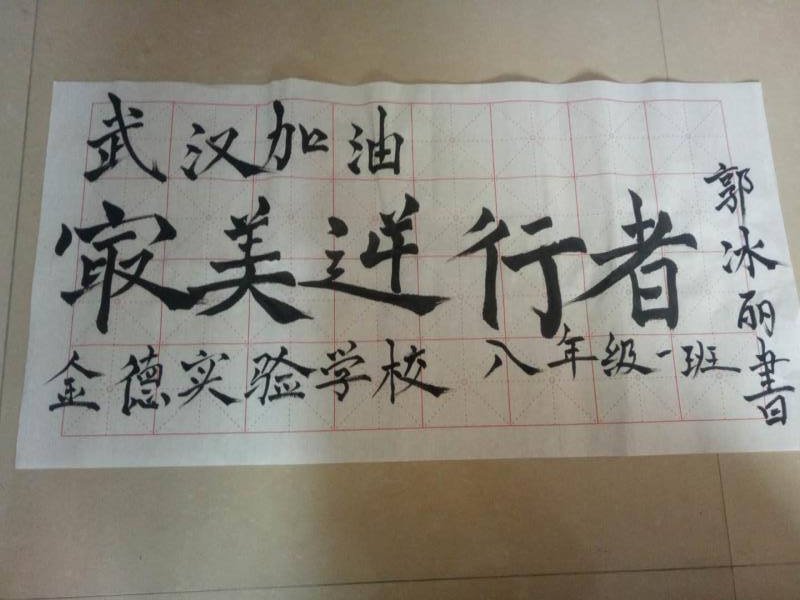 武汉加油
最美逆行者
金德实验学校 八年级一班
郭冰丽書